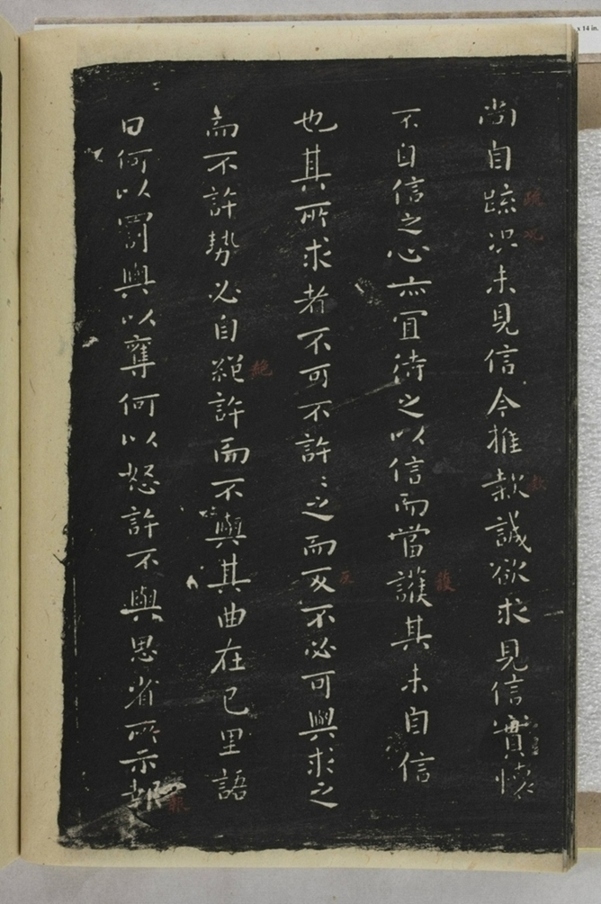 尚自疏況未見信今推款誠欲求見信實懷
不自信之心亦宜待之以信而當護其未自信
也其所求者不可不許〻之而反不必可與求之
而不許勢必自絕許而不與其曲在己里語
曰何以罰與以奪何以怒許不與思省所示報
疏
況
款
護
反
絕
報
x 14 in.